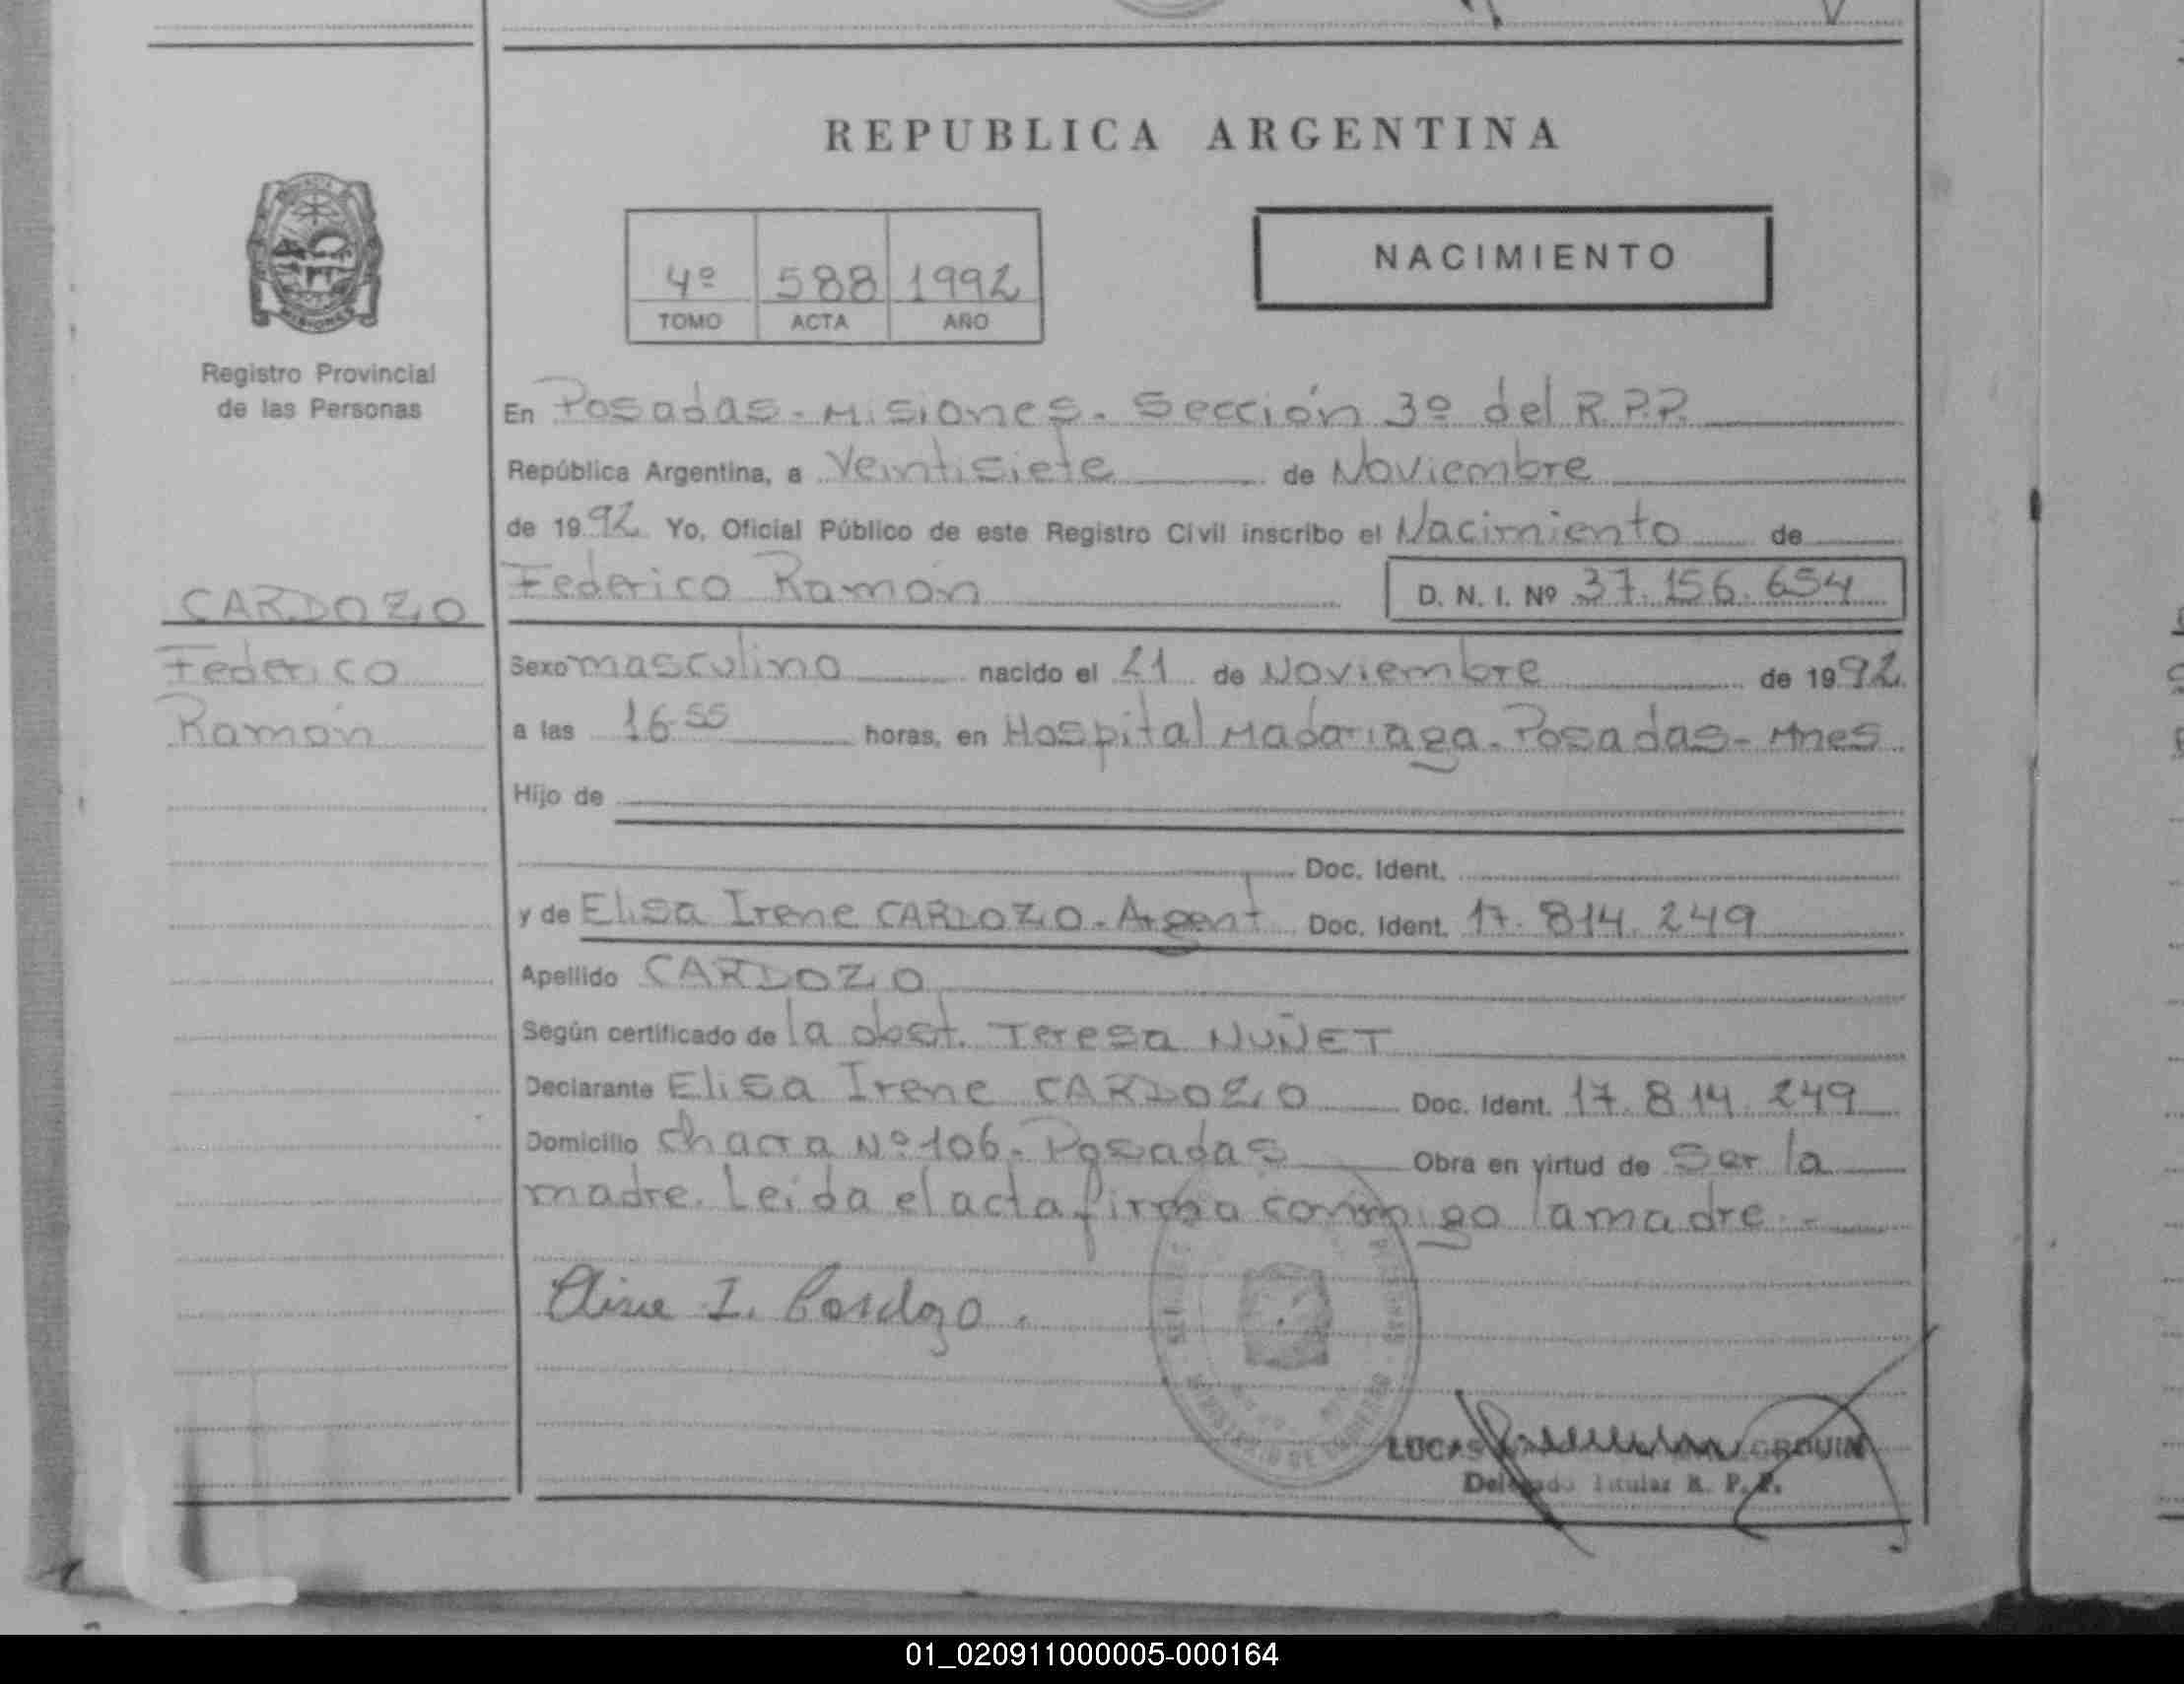 REPUBLICA ARGENTINA
NACIMIENTO
4º 588 1992
TOMO ACTA AÑO
MISIONES
Registro Provincial
de las Personas
CARDOZO
Federico
Ramón
En Posadas - Misiones - Sección 3º del R.P.P.
República Argentina, a Veintisiete de Noviembre
de 1992 Yo, Oficial Público de este Registro Civil inscribo el Nacimiento de
Federico Ramón D. N. I. Nº 37.156.654
Sexo masculino nacido el 21 de Noviembre de 1992
a las 16.55 horas, en Hospital Madariaga - Posadas - Mnes
Hijo de
Doc. Ident.
y de Elisa Irene CARDOZO - Argent Doc. Ident. 17.814.249
Apellido CARDOZO
Según certificado de la obst. Teresa NUÑET
Declarante Elisa Irene CARDOZO Doc. Ident. 17.814.249
Domicilio Chacra Nº 106 - Posadas Obra en virtud de Ser la
madre. Leída el acta firma conmigo la madre. -
Elisa I. Cardozo.
MINISTERIO DE GOBIERNO
LUCAS
Delegado Titular R. P. P.
01_020911000005-000164